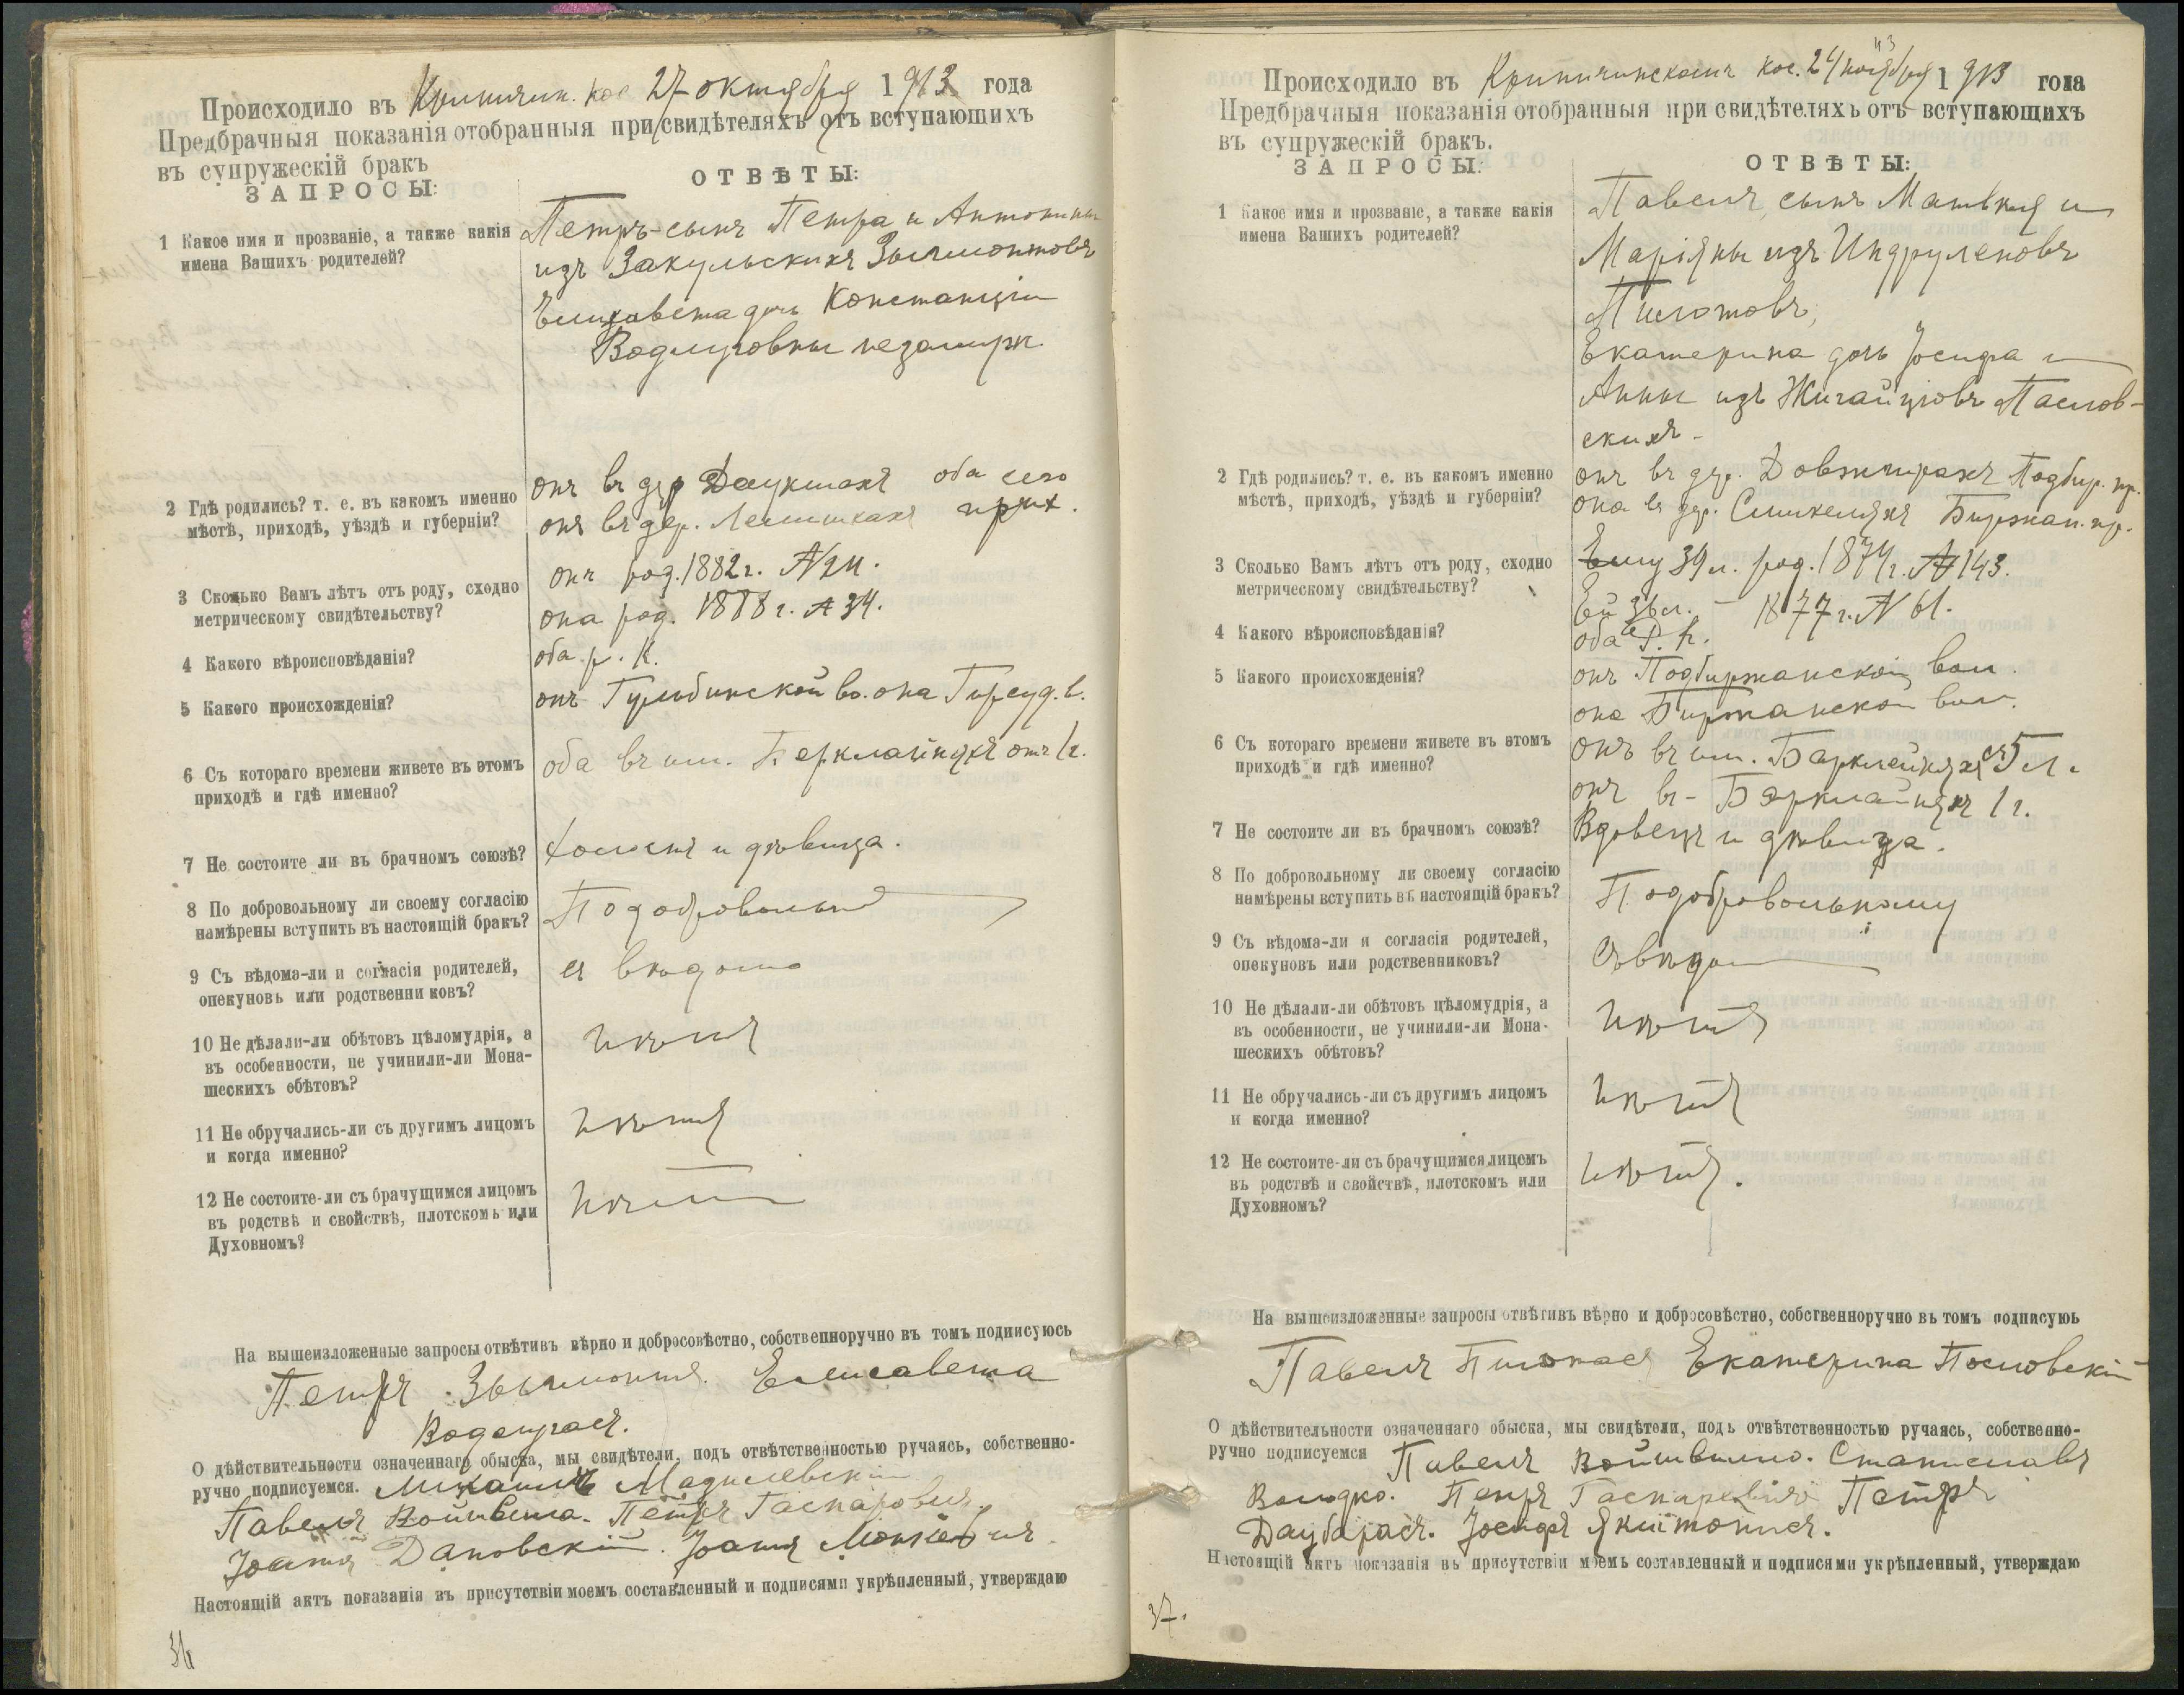 Происходило въ Крипичин. кос 27 октября 1913 года
Предбрачныя показанія отобранныя при свидѣтеляхъ отъ вступающихъ
въ супружескій бракъ
ЗАПРОСЫ:
ОТВѢТЫ:
1 Какое имя и прозваніе, а также какія
имена Вашихъ родителей?
Петръ-сынъ Петра и Антонины
изъ Закульскихъ Зыгмонтовъ
Елизавета дочь Констанціи
незамужн.
2 Гдѣ родились? т. е. въ какомъ именно
мѣстѣ, приходѣ, уѣздѣ и губерніи?
онъ въ дер Даукшахъ оба сего
она въ дер. прих.
3 Сколько Вамъ лѣтъ отъ роду, сходно
метрическому свидѣтельству?
онъ род. 1882 г.
она род. 1888 г. № 34.
4 Какого вѣроисповѣданія?
оба р. к.
5 Какого происхожденія?
онъ Гульбинской во. она Гирсуд. в.
6 Съ котораго времени живете въ этомъ
приходѣ и гдѣ именно?
оба въ им. Берклайняхъ отъ 1 г.
7 Не состоите ли въ брачномъ союзѣ?
холостъ и дѣвица.
8 По добровольному ли своему согласію
намѣрены вступить въ настоящій бракъ?
По доброволь
9 Съ вѣдома-ли и согласія родителей,
опекуновъ или родственни ковъ?
съ вѣдома
10 Не дѣлали-ли обѣтовъ цѣломудрія, а
въ особенности, не учинили-ли Мона-
шескихъ обѣтовъ?
нѣтъ
11 Не обручались-ли съ другимъ лицомъ
и когда именно?
нѣтъ
12 Не состоите-ли съ брачущимся лицомъ
въ родствѣ и свойствѣ, плотскомъ или
Духовномъ?
нѣтъ
На вышеизложенные запросы отвѣтивъ вѣрно и добросовѣстно, собственноручно въ томъ подписуюсь
Петръ Зыгмонтъ. Елисавета
О дѣйствительности означеннаго обыска, мы свидѣтели, подъ отвѣтственностью ручаясь, собственно-
ручно подписуемся. Михаилъ
Павелъ Войшвила. Петръ Гаспаровичъ
Іоаннъ Дановскій. Іоаннъ
Настоящій актъ показанія въ присутствіи моемъ составленный и подписями укрѣпленный, утверждаю
36
Происходило въ Крипичинскомъ кос. 24 ноября 1913 года
Предбрачныя показанія отобранныя при свидѣтеляхъ отъ вступающихъ
въ супружескій бракъ.
ЗАПРОСЫ:
ОТВѢТЫ:
1 Какое имя и прозваніе, а также какія
имена Вашихъ родителей?
Павелъ, сынъ Матвѣя и
Маріяны изъ Индруленовъ
Пилотовъ,
Екатерина дочь Іосифа и
Анны изъ Жигайцювъ Паслов-
скихъ.
2 Гдѣ родились? т. е. въ какомъ именно
мѣстѣ, приходѣ, уѣздѣ и губерніи?
онъ въ дер. Довжгирахъ Подбир. пр.
она въ дер. Биржан. пр.
3 Сколько Вамъ лѣтъ отъ роду, сходно
метрическому свидѣтельству?
Ему 39 л. род. 1874 г. № 143.
Ей 36 л. – 1877 г. № 61.
4 Какого вѣроисповѣданія?
оба Р. к.
5 Какого происхожденія?
онъ Подбиржанской вол.
она Биржанской вол.
6 Съ котораго времени живете въ этомъ
приходѣ и гдѣ именно?
онъ въ им. Барклайняхъ съ 5 л.
онъ въ – Бэрклайняхъ 1 г.
7 Не состоите ли въ брачномъ союзѣ?
Вдовецъ и дѣвица.
8 По добровольному ли своему согласію
намѣрены вступить въ настоящій бракъ?
По добровольному
9 Съ вѣдома-ли и согласія родителей,
опекуновъ или родственниковъ?
Съ вѣдома
10 Не дѣлали-ли обѣтовъ цѣломудрія, а
въ особенности, не учинили-ли Мона-
шескихъ обѣтовъ?
нѣтъ
11 Не обручались-ли съ другимъ лицомъ
и когда именно?
нѣтъ
12 Не состоите-ли съ брачущимся лицомъ
въ родствѣ и свойствѣ, плотскомъ или
Духовномъ?
нѣтъ.
На вышеизложенные запросы отвѣтивъ вѣрно и добросовѣстно, собственноручно въ томъ подписуюь
Павелъ Пилотасъ Екатерина Пословскій
О дѣйствительности означеннаго обыска, мы свидѣтели, подъ отвѣтственностью ручаясь, собственно-
ручно подписуемся Павелъ Войшвилло. Станиславъ
Володко. Петръ Гаспаревичъ Петръ
Даубарасъ. Іосифъ Якштонисъ.
Настоящій актъ показанія въ присутствіи моемъ составленный и подписями укрѣпленный, утверждаю
37.